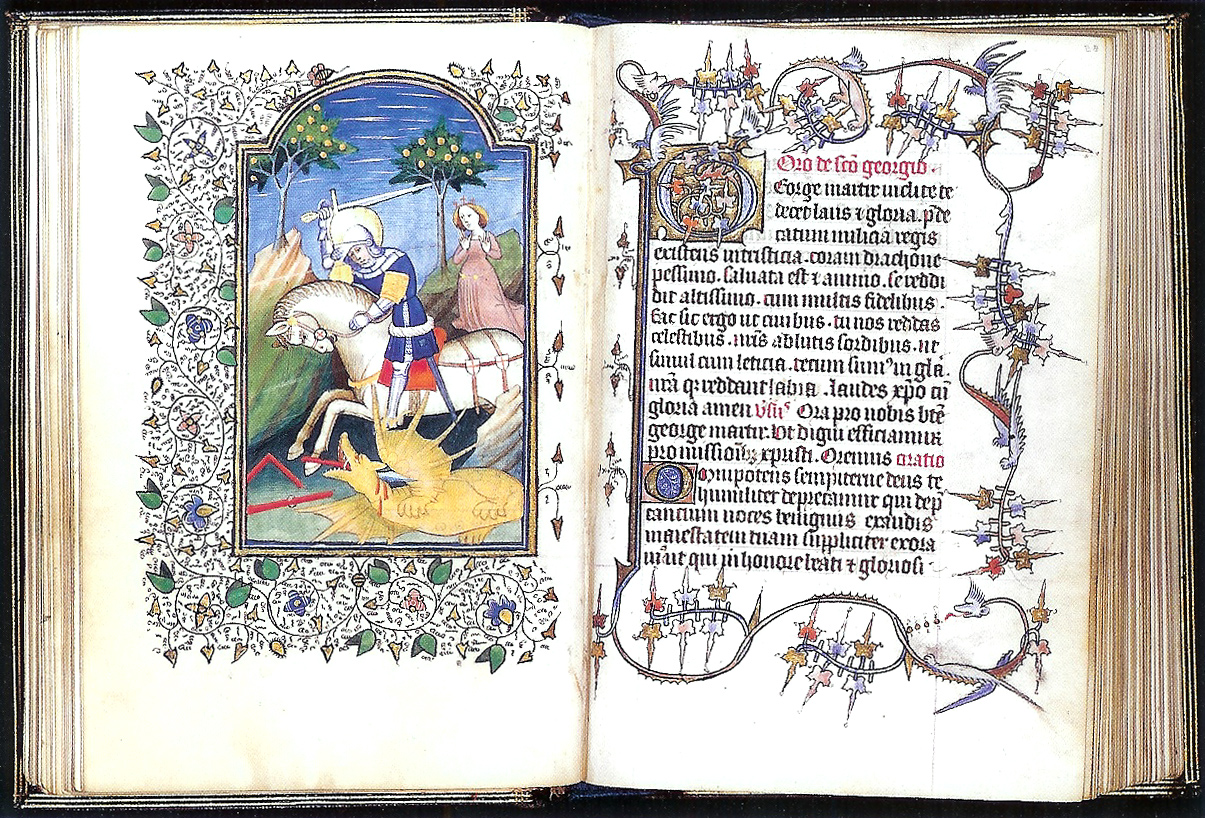 Oro de scō georgio.
Eorge martir inclite te
decet laus ⁊ gloria. p̄de
catum milicia regis
existens in tristicia. coram drachone
pessimo. saluata est ⁊ animo. se reddi
dit altissimo. cum multis fidelibus.
fac sic ergo ut ciuibus. tu nos reddas
celestibus. nr̄is ablutis sordibus. ut
simul cum leticia. tecum simꝰ in gla.
nr̄a qꝫ reddant labia. laudes xp̄o cū
gloria amen. Ora pro nobis bt̄e
george martir. Vt digni efficiamur
promissionibꝫ xpisti. Oremus oratio
Omnipotens sempiterne deus te
humiliter deprecamur qui dep̄
cantium uoces benignus exaudis
maiestatem tuam suppliciter exora
mus ut qui in honore beati ⁊ gloriosi